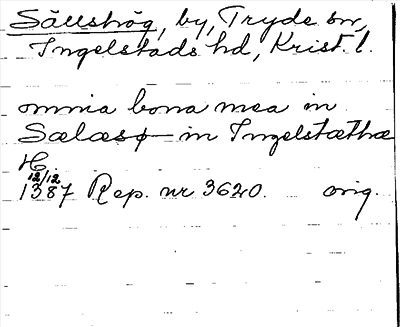 Sällshög, by, Tryde sn,
Ingelstads hd, Krist. l.
omnia bona mea in
Sælæsø in Ingelstæthæ
H.
12/12
1387 Rep. nr 3620. orig.